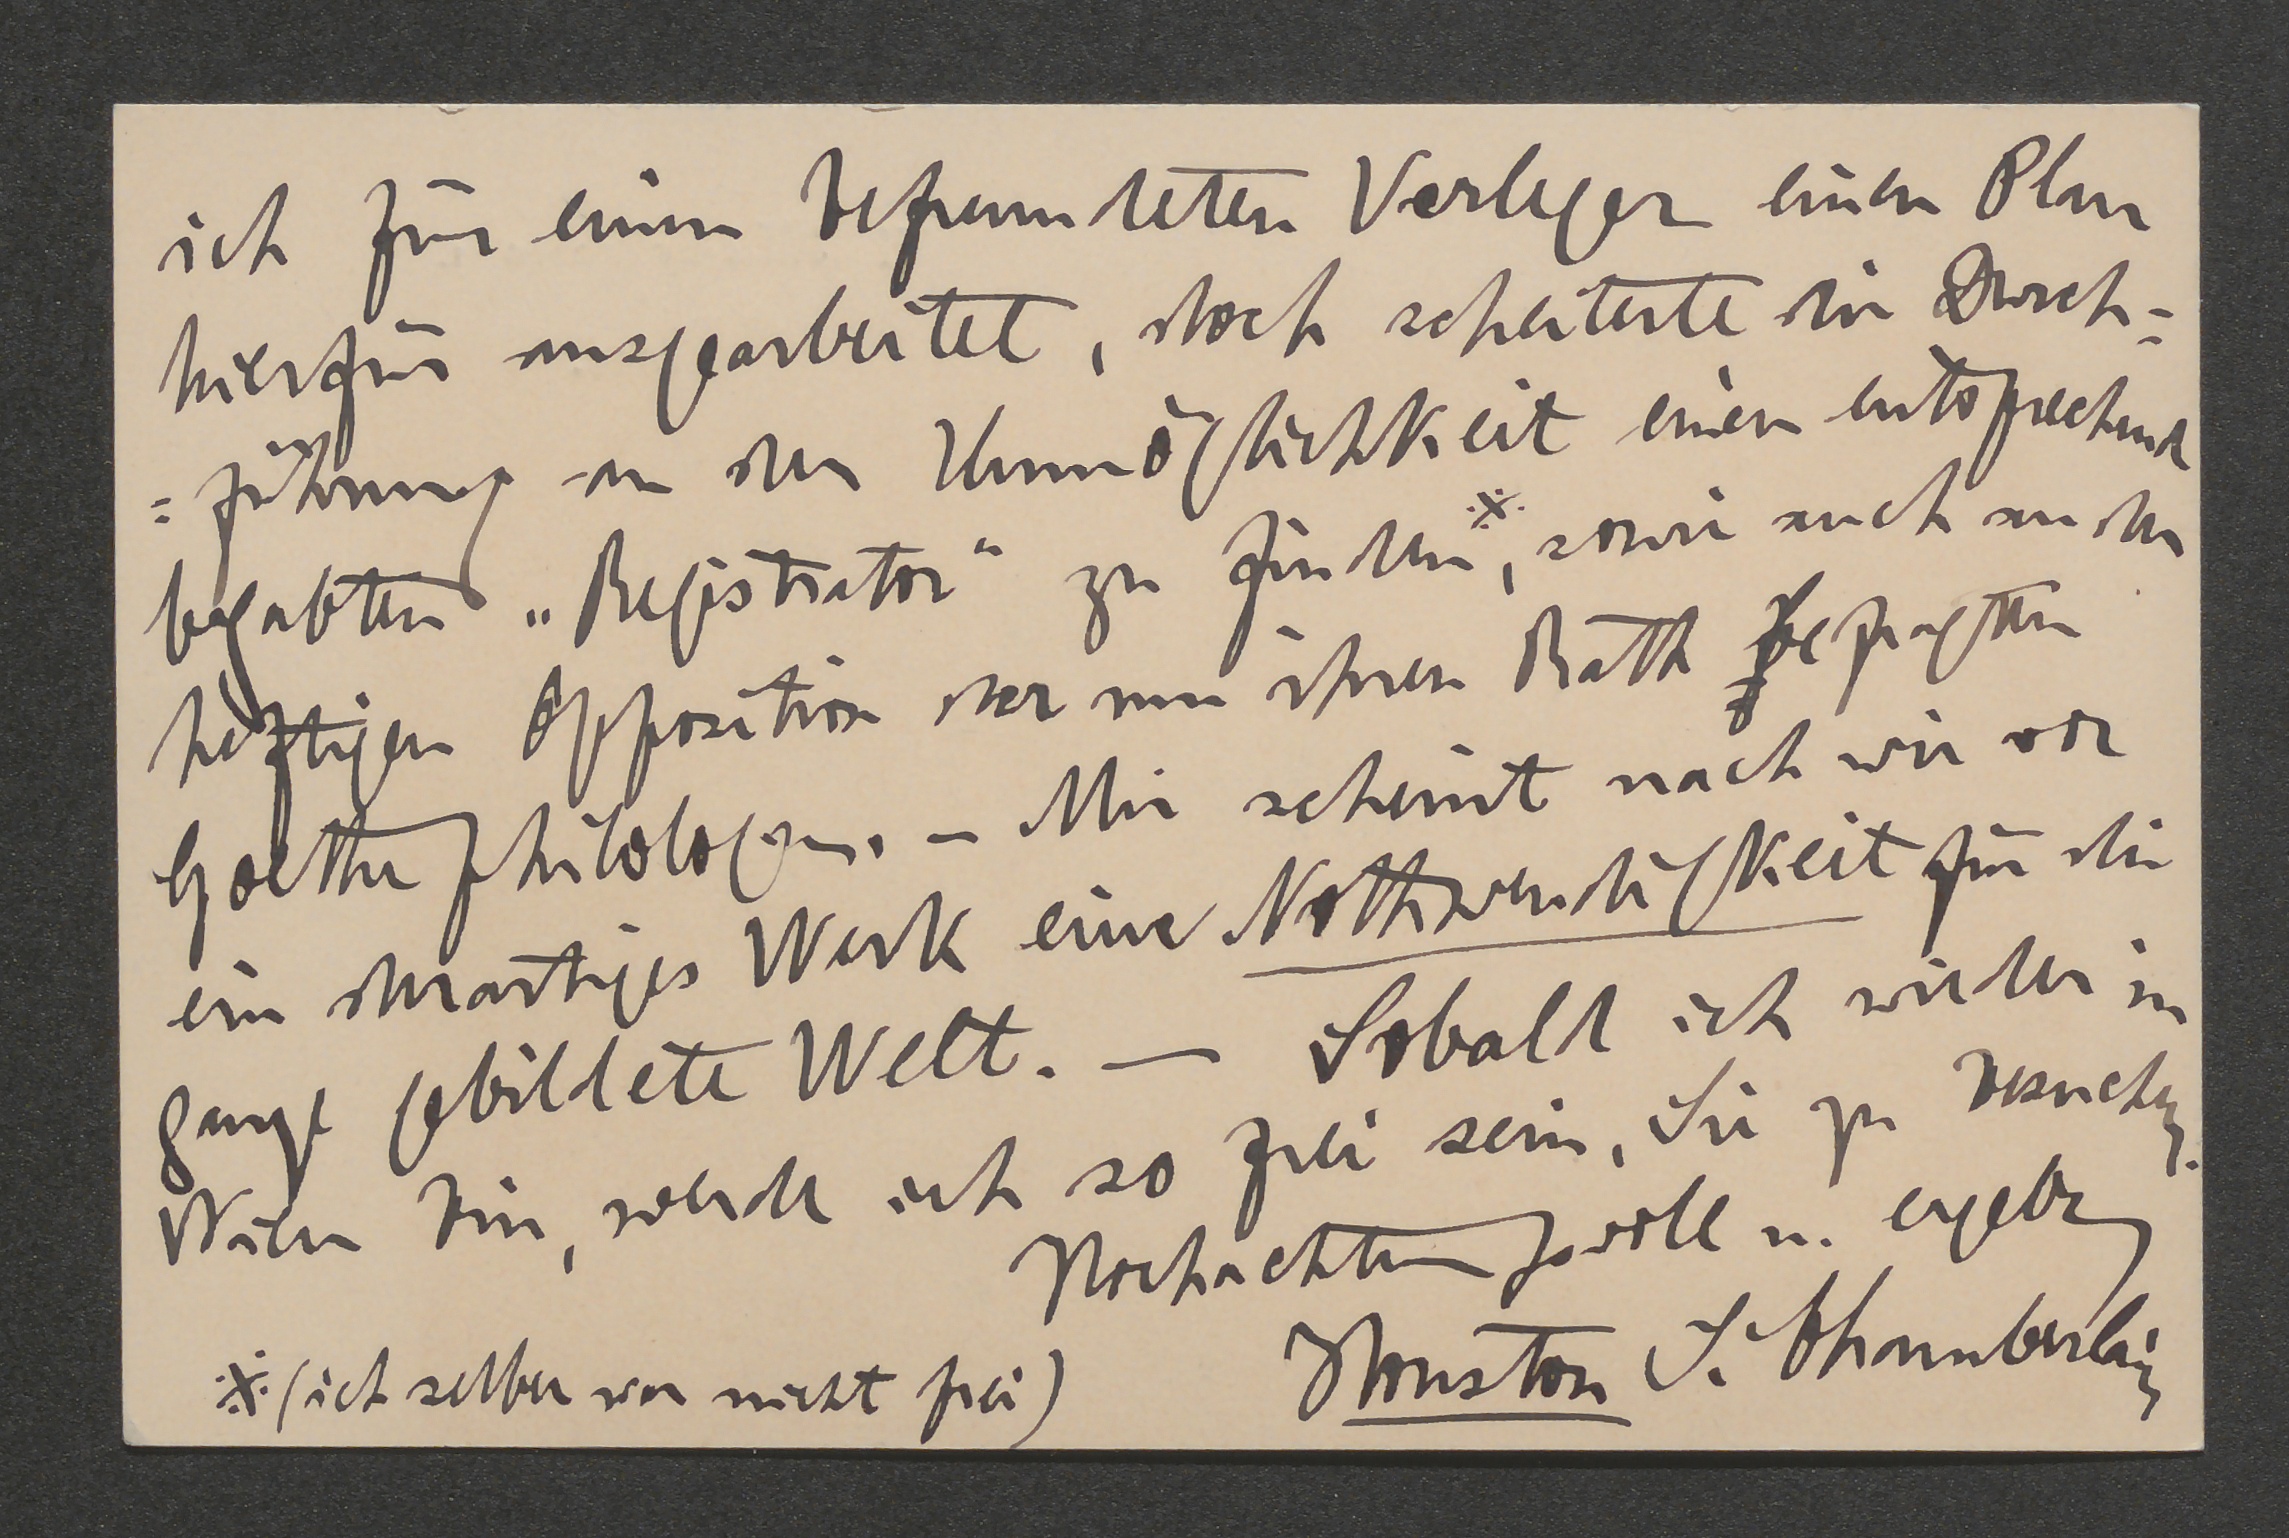 ich für einen befreundeten Verleger einen Plan
hierfür ausgearbeitet, doch scheiterte die Durch=
=führung an der Unmöglichkeit einen entsprechend
begabten „Registrator“ zu finden※, sowie auch an der
heftigen Opposition der um ihren Rath befragten
Goethephilologen. – Mir scheint nach wie vor
ein derartiges Werk eine Nothwendigkeit für die
ganze gebildete Welt. — Sobald ich wieder in
Wien bin, werde ich so frei sein, Sie zu besuchen.
Hochachtungsvoll u. ergebenst
Houston S. Chamberlain
※ (ich selber war nicht frei)